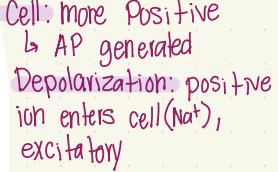 Cell: more Positive
↳ AP generated
Depolarization: positive
ion enters cell (Na⁺),
excitatory